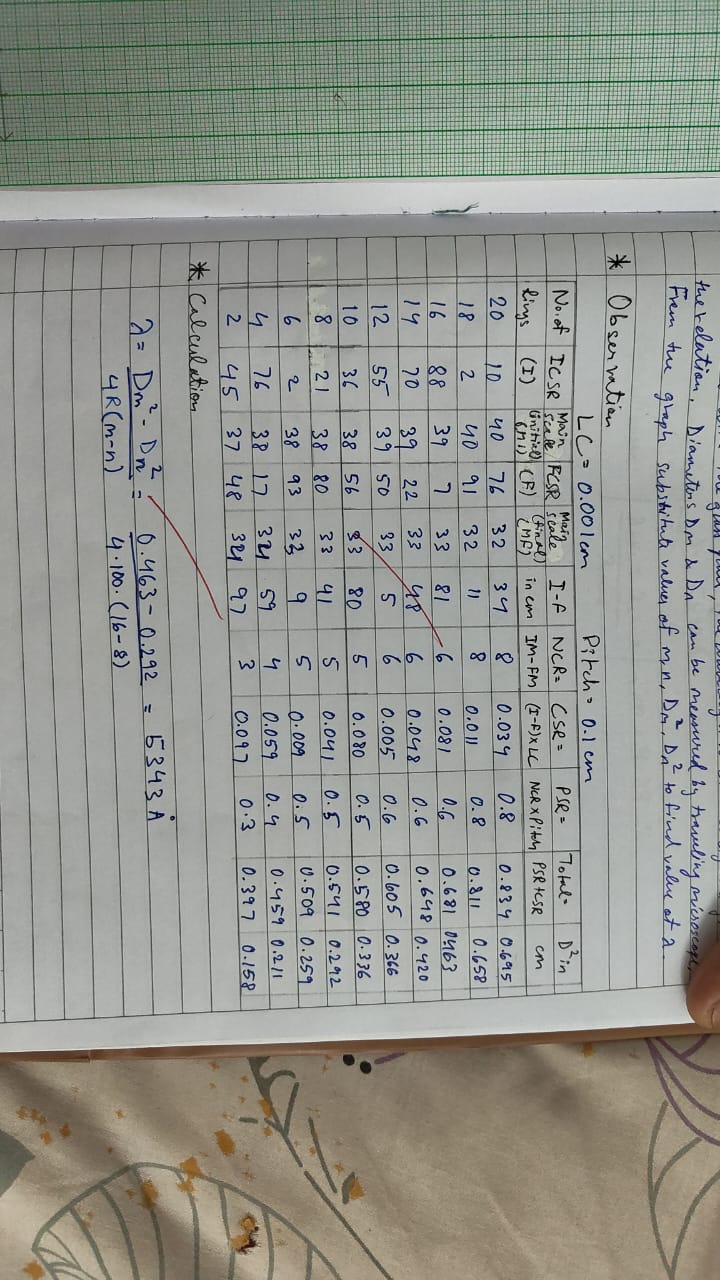 the relation. Diameters Dm & Dn can be measured by traveling microscope
From the graph substitute values of m, n, Dm², Dn² to find value of λ.
* Observation
LC = 0.001cm Pitch = 0.1 cm
No. of Rings ICSR (I) Main scale (initial) (MI) FCSR (F) Main scale (final) (MF) I-F in cm NCR= IM-FM CSR= (I-F)xLC PSR= NCR x Pitch Total= PSR+CSR D² in cm
20 10 40 76 32 34 8 0.034 0.8 0.834 0.695
18 2 40 91 32 11 8 0.011 0.8 0.811 0.658
16 88 39 7 33 81 6 0.081 0.6 0.681 0463
14 70 39 22 33 48 6 0.048 0.6 0.648 0.420
12 55 39 50 33 5 6 0.005 0.6 0.605 0.366
10 36 38 56 33 80 5 0.080 0.5 0.580 0.336
8 21 38 80 33 41 5 0.041 0.5 0.541 0.292
6 2 38 93 33 9 5 0.009 0.5 0.509 0.259
4 76 38 17 34 59 4 0.059 0.4 0.459 0.211
2 45 37 48 34 97 3 0.097 0.3 0.397 0.158
* Calculation
λ = Dm² - Dn² / 4R(m-n) = 0.463 - 0.292 / 4·100·(16-8) = 5343 Å